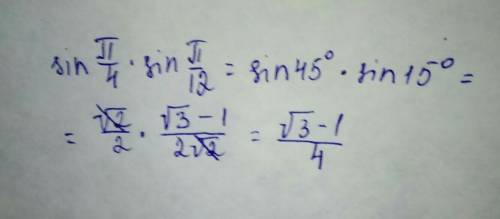 sin π/4 · sin π/12 = sin 45° · sin 15° =
= √2/2 · (√3 - 1)/(2√2) = (√3 - 1)/4